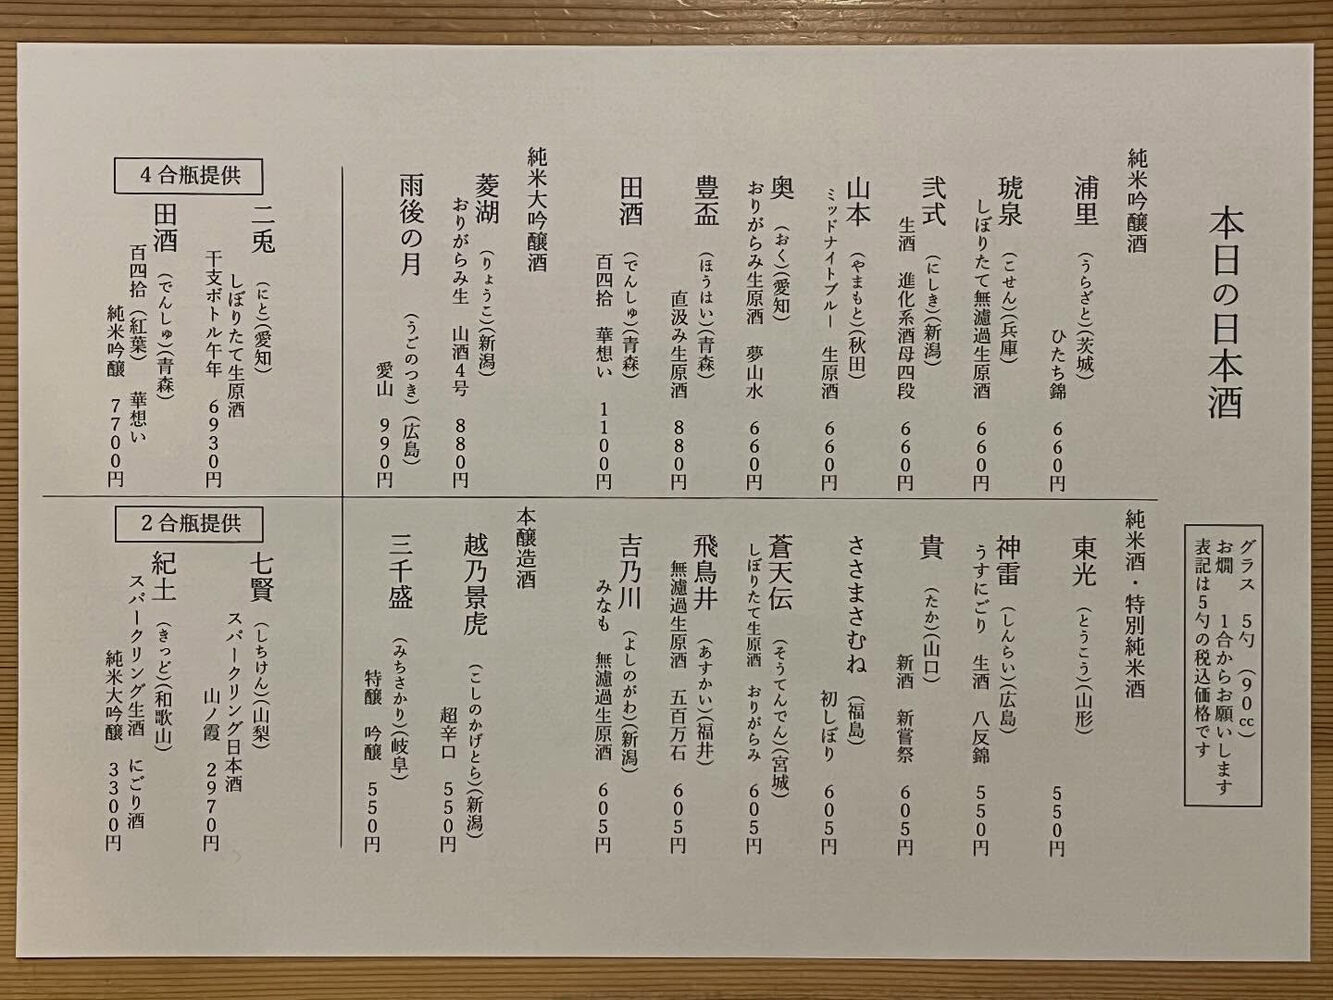 本日の日本酒
グラス　5勺　(90㏄)
お燗　1合からお願いします
表記は5勺の税込価格です
純米吟醸酒
浦里　(うらざと)(茨城)
ひたち錦　660円
琥泉　(こせん)(兵庫)
しぼりたて無濾過生原酒　660円
弐式　(にしき)(新潟)
生酒　進化系酒母四段　660円
山本　(やまもと)(秋田)
ミッドナイトブルー　生原酒　660円
奥　(おく)(愛知)
おりがらみ生原酒　夢山水　660円
豊盃　(ほうはい)(青森)
直汲み生原酒　880円
田酒　(でんしゅ)(青森)
百四拾　華想い　1100円
純米大吟醸酒
菱湖　(りょうこ)(新潟)
おりがらみ生　山酒4号　880円
雨後の月　(うごのつき)(広島)
愛山　990円
純米酒・特別純米酒
東光　(とうこう)(山形)
550円
神雷　(しんらい)(広島)
うすにごり　生酒　八反錦　550円
貴　(たか)(山口)
新酒　新嘗祭　605円
ささまさむね　(福島)
初しぼり　605円
蒼天伝　(そうてんでん)(宮城)
しぼりたて生原酒　おりがらみ　605円
飛鳥井　(あすかい)(福井)
無濾過生原酒　五百万石　605円
吉乃川　(よしのがわ)(新潟)
みなも　無濾過生原酒　605円
本醸造酒
越乃景虎　(こしのかげとら)(新潟)
超辛口　550円
三千盛　(みちさかり)(岐阜)
特醸　吟醸　550円
4合瓶提供
二兎　(にと)(愛知)
しぼりたて生原酒
干支ボトル午年　6930円
田酒　(でんしゅ)(青森)
百四拾　(紅葉)　華想い
純米吟醸　7700円
2合瓶提供
七賢　(しちけん)(山梨)
スパークリング日本酒
山ノ霞　2970円
紀土　(きっど)(和歌山)
スパークリング生酒　にごり酒
純米大吟醸　3300円